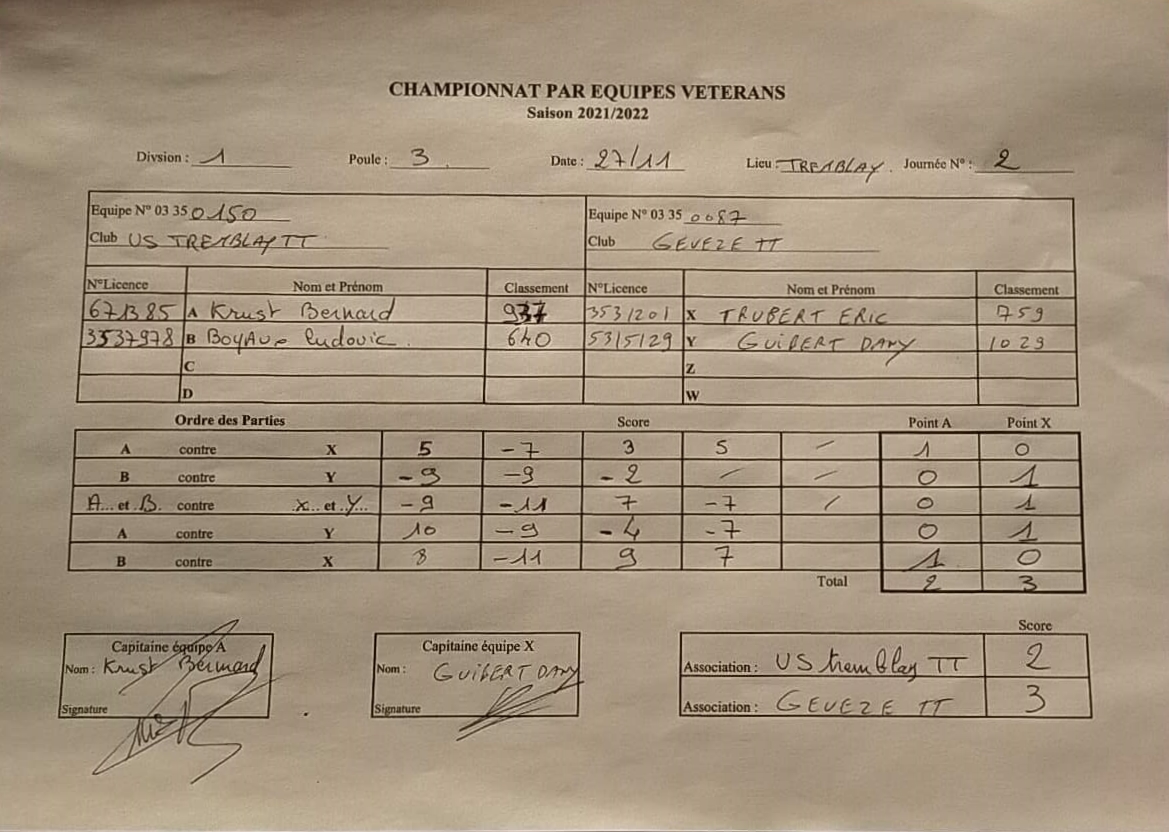 CHAMPIONNAT PAR EQUIPES VETERANS
Saison 2021/2022
Divsion : 1 Poule : 3 Date : 27/11 Lieu : TREMBLAY Journée N° : 2
Equipe N° 03 35 0150 Equipe N° 03 35 0087
Club US TREMBLAY TT Club GEVEZE TT
N°Licence Nom et Prénom Classement N°Licence Nom et Prénom Classement
671385 A Krust Bernard 937 3531201 X TRUBERT ERIC 759
3537978 B Ludovic 640 5315129 Y GUIBERT DANY 1029
C Z
D W
Ordre des Parties Score Point A Point X
A contre X 5 -7 3 5 / 1 0
B contre Y -9 -9 -2 / / 0 1
A... et .B. contre X.. et .Y... -9 -11 7 -7 / 0 1
A contre Y 10 -9 -4 -7 0 1
B contre X 8 -11 9 7 1 0
Total 2 3
Score
Capitaine équipe A Capitaine équipe X
Nom : Krust Bernard Nom : GUIBERT DANY Association : US tremblay TT 2
Signature Signature Association : GEVEZE TT 3